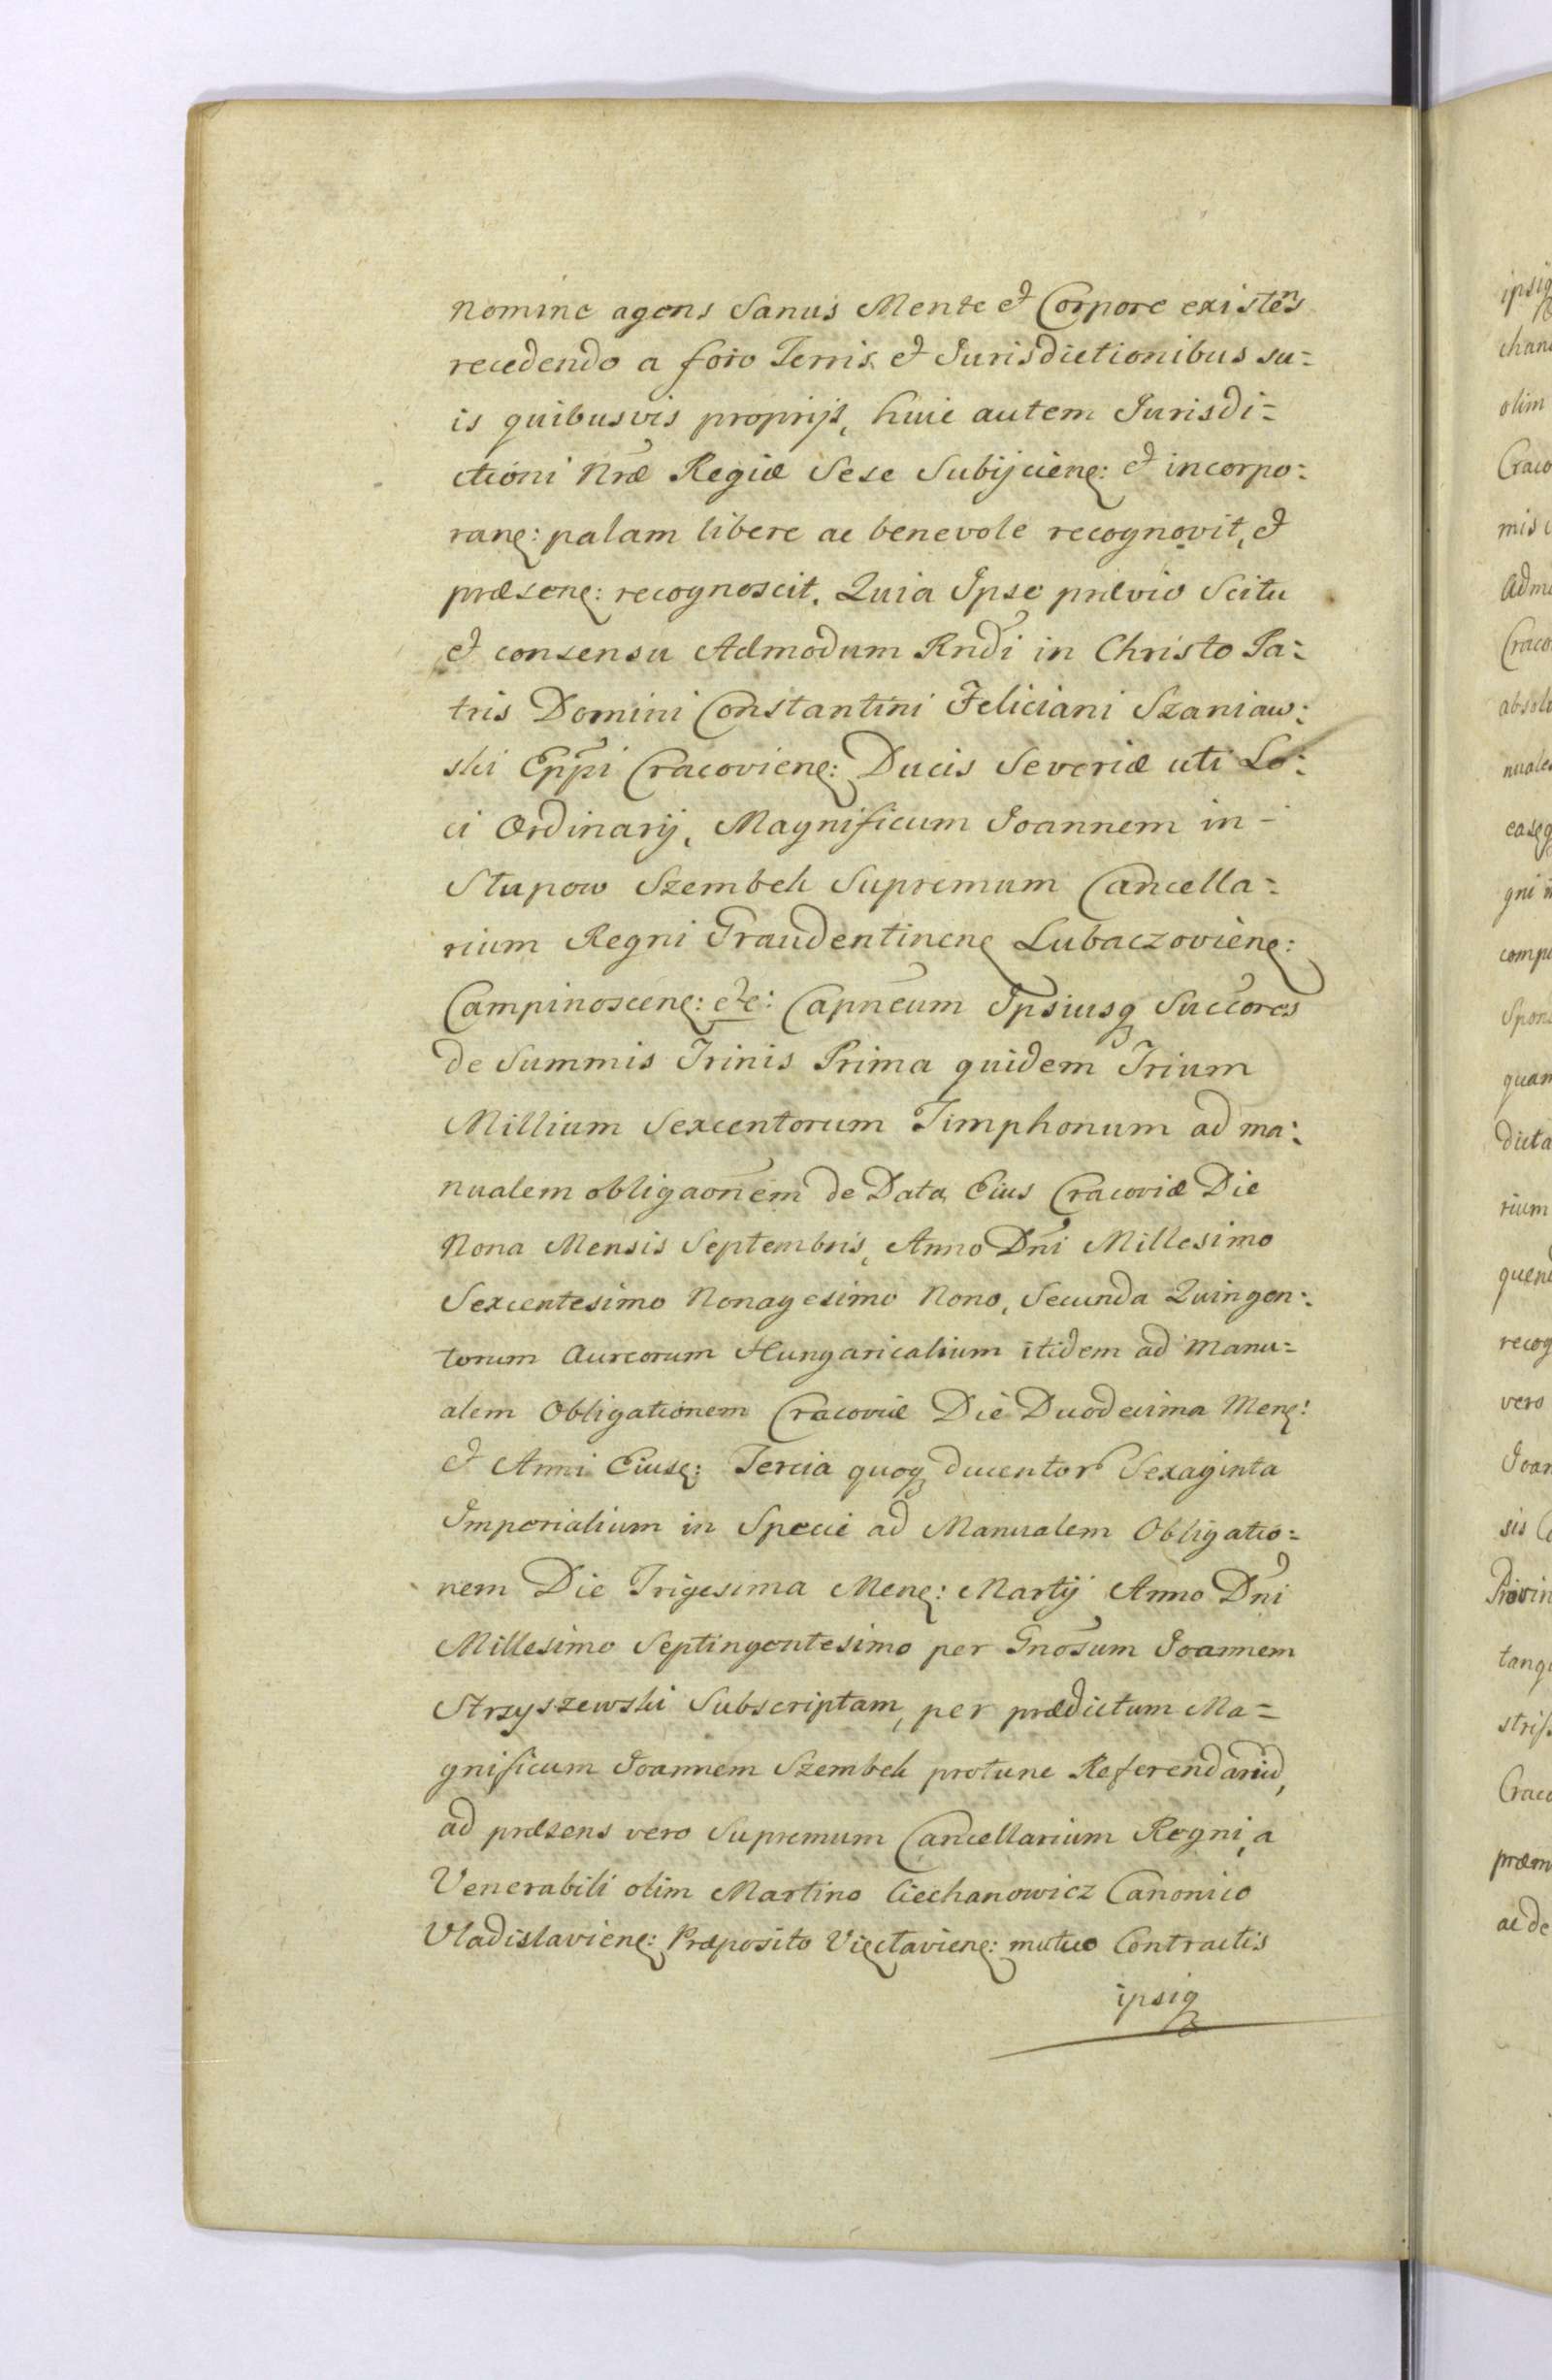 nomine agens Sanus Mente et Corpore existens
recedendo a foro Terris et Jurisdictionibus su=
is quibusvis proprijs, huic autem Jurisdi=
ctioni Nræ Regiæ Sese Subijcienę: et incorpo:
ranę: palam libere ac benevole recognovit, et
præsenę: recognoscit. Quia Ipse prævio Scitu
et consensu Admodum Rndi in Christo Pa:
tris Domini Constantini Feliciani Szaniaw:
ski Eppi Cracovienę: Ducis Severiæ uti Lo:
ci Ordinarij, Magnificum Joannem in -
Słupow Szembek Supremum Cancella=
rium Regni Graudentinenę Lubaczovienę:
Campinoscenę: etc: Capneum Ipsiusq Succores
de Summis Trinis Prima quidem Trium
Millium Sexcentorum Timphonum ad ma:
nualem obligaonem de Data Eius Cracoviæ Die
Nona Mensis Septembris, Anno Dni Millesimo
Sexcentesimo Nonagesimo Nono, Secunda Quingen:
torum Aureorum Hungaricalium itidem ad Manu=
alem Obligationem Cracoviæ Die Duodecima Menę:
et Anni Eiusę: Tercia quoq ducentor Sexaginta
Imperialium in Specie ad Manualem Obligatio=
nem Die Trigesima Menę: Martij Anno Dni
Millesimo Septingentesimo per Gnosum Joannem
Strzyszewski Subscriptam, per prædictum Ma=
gnificum Joannem Szembek protunc Referendariu,
ad præsens vero Supremum Cancellarium Regni, a
Venerabili olim Martino Ciechanowicz Canonico
Vladislavienę: Præposito Vięctavienę: mutuo Contractis
ipsiq
ipsiq
chan
olim
Craco
mis
Adm
Craco
absol
nuale
easq
gni
comp
Spon
quam
dicta
rium
quen
recog
vero
Joan
sis
Provin
tanq
Craco
præm
ac de